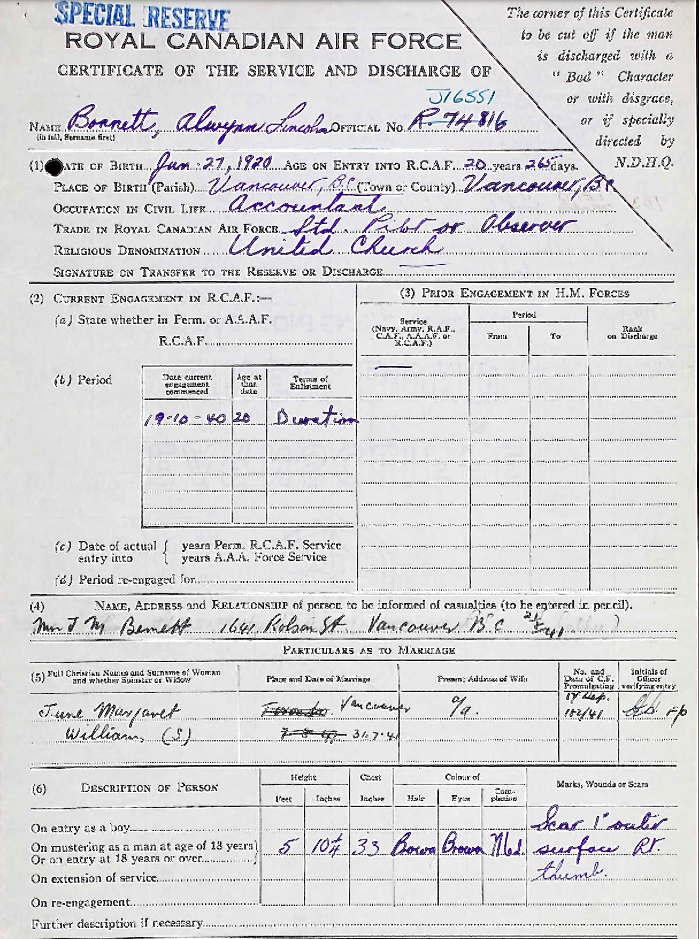 SPECIAL RESERVE
ROYAL CANADIAN AIR FORCE
CERTIFICATE OF THE SERVICE AND DISCHARGE OF
The corner of this Certificate
to be cut off if the man
is discharged with a
"Bad" Character
or with disgrace,
or if specially
directed by
N.D.H.Q.
J16551
NAME Bonnett, Alwynn Lincoln OFFICIAL No. R-74816
(in full, Surname first)
(1) ATE OF BIRTH Jan 27, 1920 AGE ON ENTRY INTO R.C.A.F. 20 years 265 days.
PLACE OF BIRTH (Parish) Vancouver, B.C. (Town or County) Vancouver, BC
OCCUPATION IN CIVIL LIFE Accountant
TRADE IN ROYAL CANADIAN AIR FORCE Std. Pilot or Observer
RELIGIOUS DENOMINATION United Church
SIGNATURE ON TRANSFER TO THE RESERVE OR DISCHARGE
(2) CURRENT ENGAGEMENT IN R.C.A.F.:—
(a) State whether in Perm. or A.A.A.F.
R.C.A.F.
(b) Period
Date current engagement commenced Age at that date Terms of Enlistment
19-10-40 20 Duration
(c) Date of actual entry into { years Perm. R.C.A.F. Service
years A.A.A. Force Service
(d) Period re-engaged for
(3) PRIOR ENGAGEMENT IN H.M. FORCES
Service (Navy, Army, R.A.F., C.A.F., A.A.A.F. or R.C.A.F.) Period From To Rank on Discharge
—
(4) NAME, ADDRESS and RELATIONSHIP of person to be informed of casualties (to be entered in pencil).
Mrs J M Bennett 1641 Robson St. Vancouver B.C.
PARTICULARS AS TO MARRIAGE
(5) Full Christian Names and Surname of Woman and whether Spinster or Widow Place and Date of Marriage Present Address of Wife No. and Date of C.F. Promulgating Initials of Officer verifying entry
June Margaret Toronto Vancouver 102/41 F/O
Williams (S) 31.7.41
(6) DESCRIPTION OF PERSON
Height Chest Colour of Marks, Wounds or Scars
Feet Inches Inches Hair Eyes Complexion
On entry as a boy
On mustering as a man at age of 18 years)
Or on entry at 18 years or over
5 10¼ 33 Brown Brown Med.
Scar 1" outer
surface Rt.
thumb.
On extension of service
On re-engagement
Further description if necessary